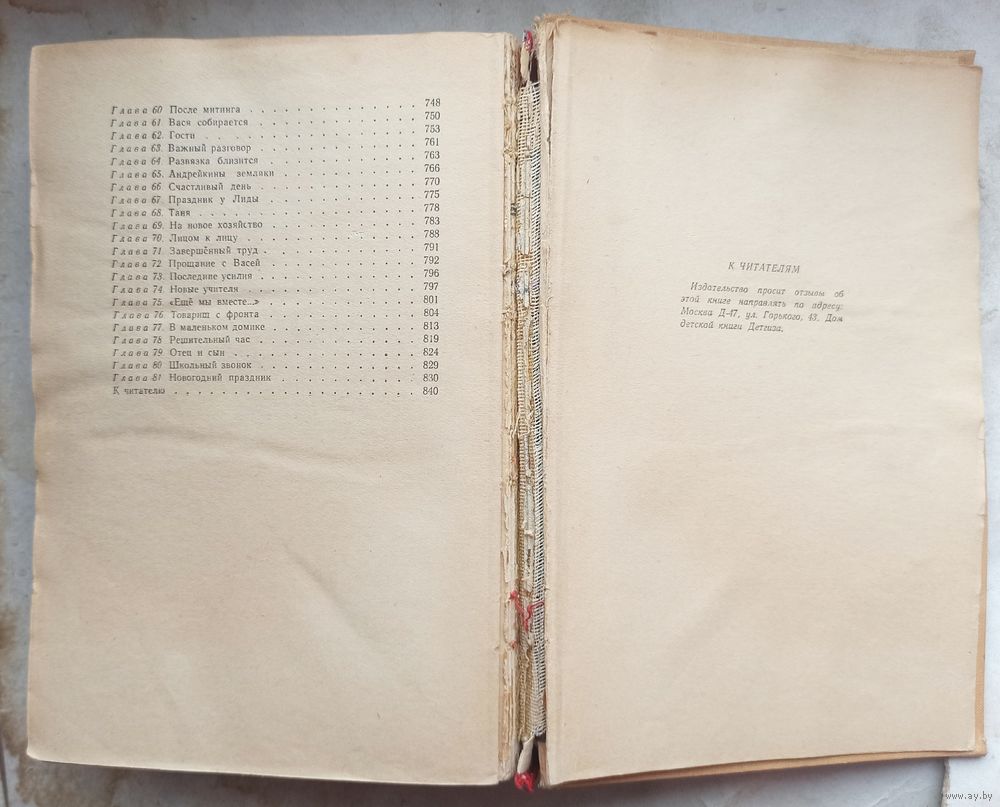 Глава 60 После митинга . . . . . . . . . . . . 748
Глава 61. Вася собирается . . . . . . . . . . . . 750
Глава 62. Гости . . . . . . . . . . . . 753
Глава 63. Важный разговор . . . . . . . . . . . . 761
Глава 64. Развязка близится . . . . . . . . . . . . 763
Глава 65. Андрейкины земляки . . . . . . . . . . . . 766
Глава 66. Счастливый день . . . . . . . . . . . . 770
Глава 67. Праздник у Лиды . . . . . . . . . . . . 775
Глава 68. Таня . . . . . . . . . . . . 778
Глава 69. На новое хозяйство . . . . . . . . . . . . 783
Глава 70. Лицом к лицу . . . . . . . . . . . . 788
Глава 71. Завершённый труд . . . . . . . . . . . . 791
Глава 72. Прощание с Васей . . . . . . . . . . . . 792
Глава 73. Последние усилия . . . . . . . . . . . . 796
Глава 74. Новые учителя . . . . . . . . . . . . 797
Глава 75. «Ещё мы вместе...» . . . . . . . . . . . . 801
Глава 76 Товарищ с фронта . . . . . . . . . . . . 804
Глава 77. В маленьком домике . . . . . . . . . . . . 813
Глава 78 Решительный час . . . . . . . . . . . . 819
Глава 79. Отец и сын . . . . . . . . . . . . 824
Глава 80 Школьный звонок . . . . . . . . . . . . 829
Глава 81 Новогодний праздник . . . . . . . . . . . . 830
К читателю . . . . . . . . . . . . 840
К ЧИТАТЕЛЯМ
Издательство просит отзывы об
этой книге направлять по адресу:
Москва Д-47, ул. Горького, 43. Дом
детской книги Детгиза.
www.ay.by